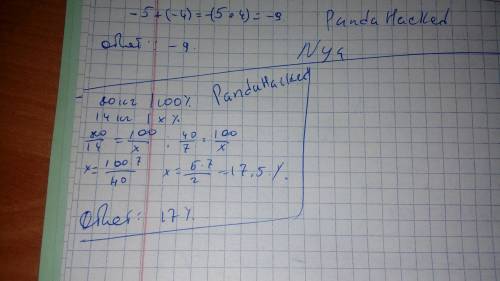 -5+(-4)=-(5+4)=-9 PandaHacked
Ответ: -9.
Nya
80кг | 100% PandaHacked
14кг | x%
80/14 = 100/x ; 40/7 = 100/x
x = 100 7/40 x = 5·7/2 = 17.5%.
Ответ: 17%